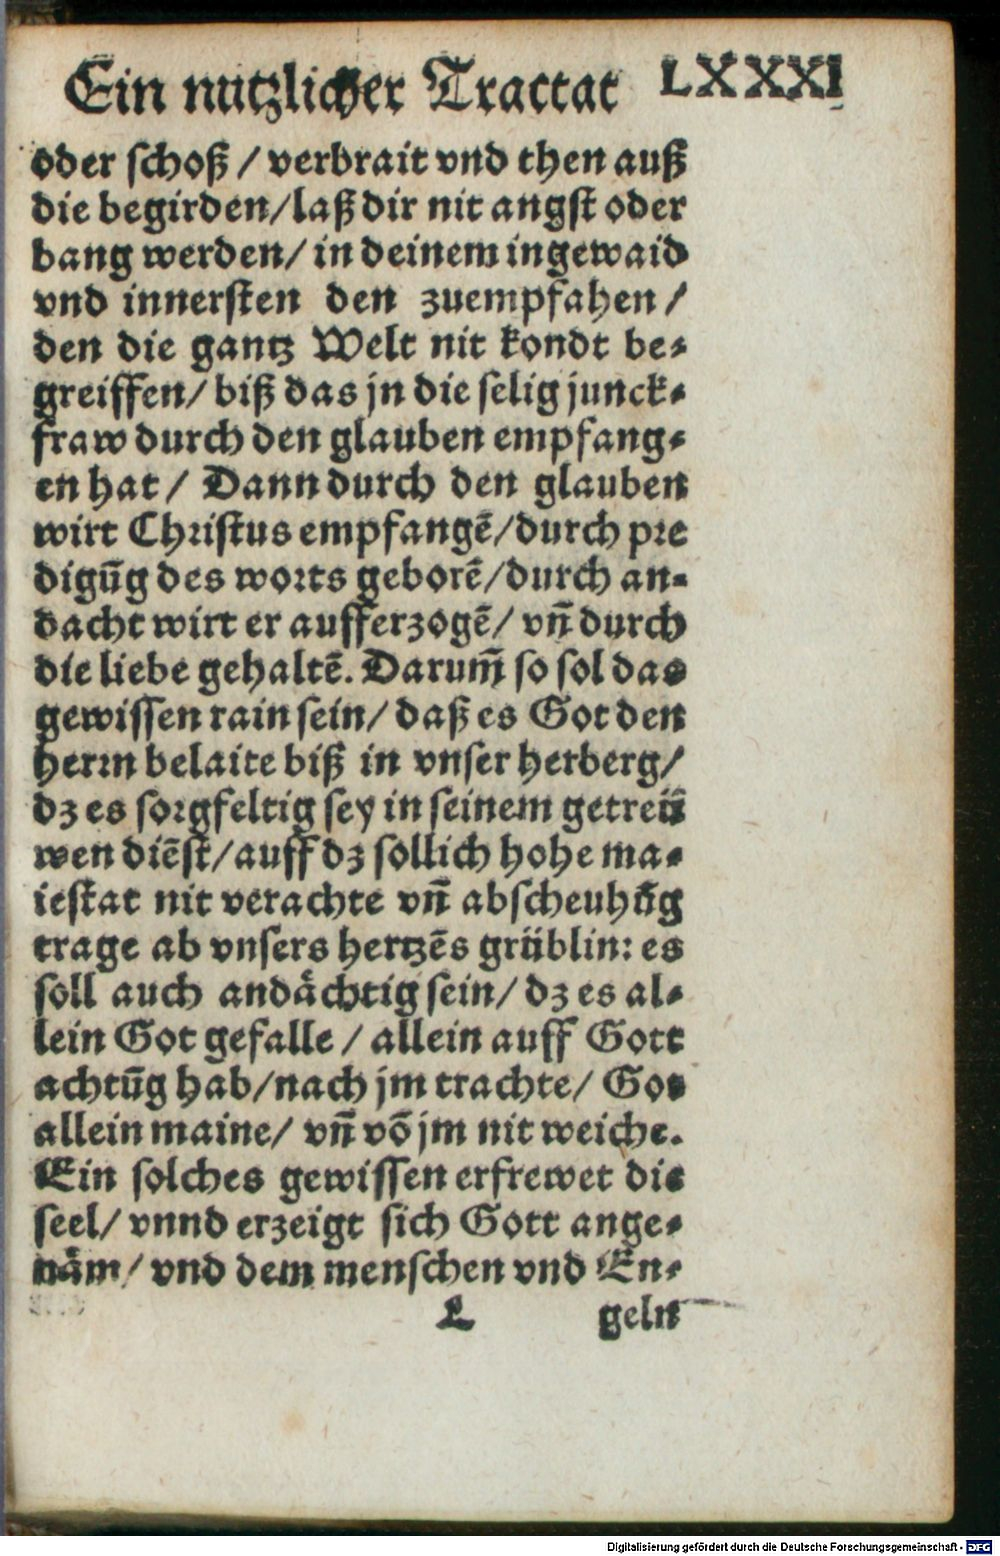 Ein nutzlicher Tractat LXXXI
oder schoß / verbrait vnd then auß
die begirden/laß dir nit angst oder
bang werden/ in deinem ingewaid
vnd innersten den zuempfahen /
den die gantz Welt nit kondt be-
greiffen/ biß das jn die selig junck-
fraw durch den glauben empfang-
en hat / Dann durch den glauben
wirt Christus empfangē/durch pre
digūg des worts geborē/durch an-
dacht wirt er aufferzogē/ vñ durch
die liebe gehaltē. Darum̄ so sol das
gewissen rain sein/ daß es Got den
herrn belaite biß in vnser herberg/
dz es sorgfeltig sey in seinem getreü
wen diēst/auff dz sollich hohe ma-
iestat nit verachte vñ abscheuhūg
trage ab vnsers hertzēs grüblin: es
soll auch andåchtig sein/ dz es al-
lein Got gefalle / allein auff Gott
achtūg hab/nach jm trachte/ Got
allein maine/ vñ vō jm nit weiche.
Ein solches gewissen erfrewet die
seel/ vnnd erzeigt sich Gott ange-
nåm/ vnd dem menschen vnd En-
L geln
Digitalisierung gefördert durch die Deutsche Forschungsgemeinschaft - DFG